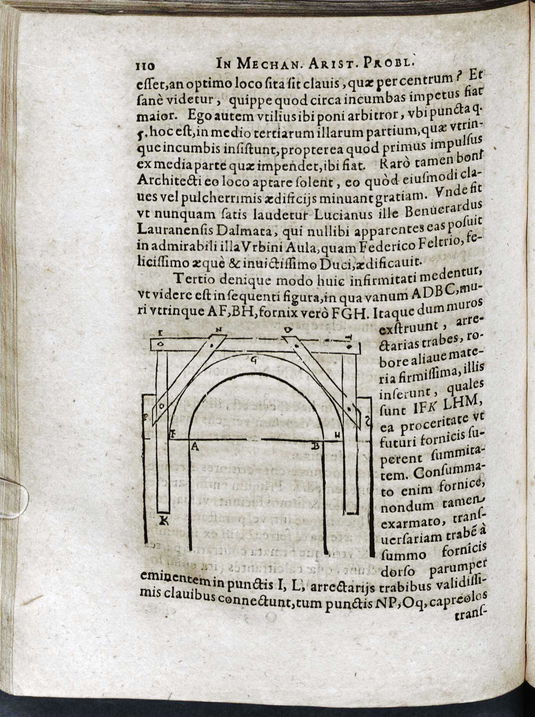 110 IN MECHAN. ARIST. PROBL.
esset, an optimo loco sita sit clauis, quæ per centrum? Et
sanè videtur, quippe quod circa incumbas impetus fiat
maior. Ego autem vtilius ibi poni arbitror, vbi puncta q.
5. hoc est, in medio tertiarum illarum partium, quæ vtrin-
que incumbis insistunt, propterea quod primus impulsus
ex media parte quæ impendet, ibi fiat. Rarò tamen boni
Architecti eo loco aptare solent, eo quòd eiusmodi cla-
ues vel pulcherrimis ædificijs minuant gratiam. Vnde sit
vt nunquam satis laudetur Lucianus ille Benuerardus
Lauranensis Dalmata, qui nullibi apparentes eas posuit
in admirabili illa Vrbini Aula, quam Federico Feltrio, fe-
licissimo æquè & inuictissimo Duci, ædificauit.
Tertio denique modo huic infirmitati medentur,
vt videre est in sequenti figura, in qua vanum ADBC, mu-
ri vtrinque AF, BH, fornix verò FGH. Itaque dum muros
exstruunt, arre-
ctarias trabes, ro-
bore aliaue mate-
ria firmissima, illis
inserunt, quales
sunt IFK LHM,
ea proceritate vt
futuri fornicis su-
perent summita-
tem. Consumma-
to enim fornice,
nondum tamen
exarmato, trans-
uersariam trabē à
summo fornicis
dorso parumper
I N O L
G
F A B H
K
eminentem in punctis I, L, arrectarijs trabibus validissi-
mis clauibus connectunt, tum punctis NP, Oq, capreolos
trans-